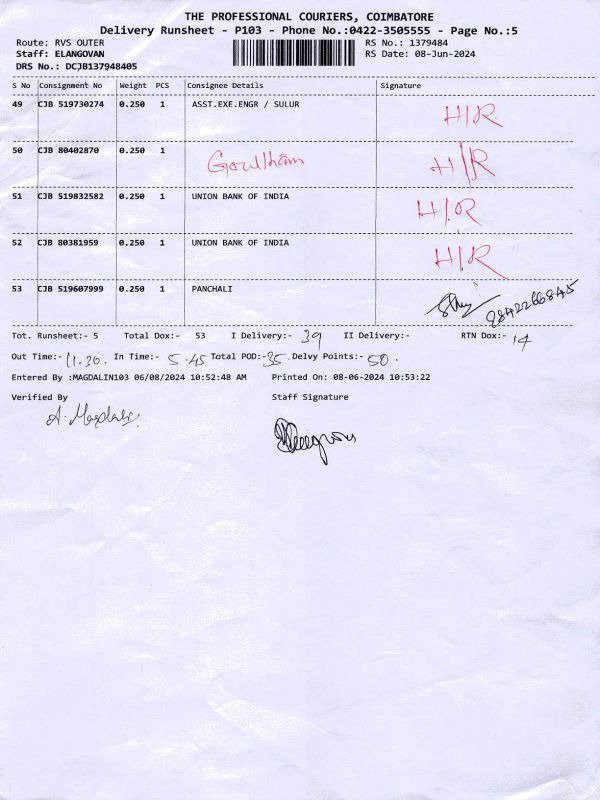 THE PROFESSIONAL COURIERS, COIMBATORE
Delivery Runsheet - P103 - Phone No.:0422-3505555 - Page No.:5
Route: RVS OUTER RS No.: 1379484
Staff: ELANGOVAN RS Date: 08-Jun-2024
DRS No.: DCJB137948405
S No Consignment No Weight PCS Consignee Details Signature
49 CJB 519730274 0.250 1 ASST.EXE.ENGR / SULUR H/R
50 CJB 80402870 0.250 1 Goulham H/R
51 CJB 519832582 0.250 1 UNION BANK OF INDIA H/R
52 CJB 80381959 0.250 1 UNION BANK OF INDIA H/R
53 CJB 519607999 0.250 1 PANCHALI 9842266845
Tot. Runsheet:- 5 Total Dox:- 53 I Delivery:- 39 II Delivery:- RTN Dox:- 14
Out Time:- 11.30. In Time:- 5.45 Total POD:-35 .Delvy Points:- 50.
Entered By :MAGDALIN103 06/08/2024 10:52:48 AM Printed On: 08-06-2024 10:53:22
Verified By Staff Signature
A. Magdalin